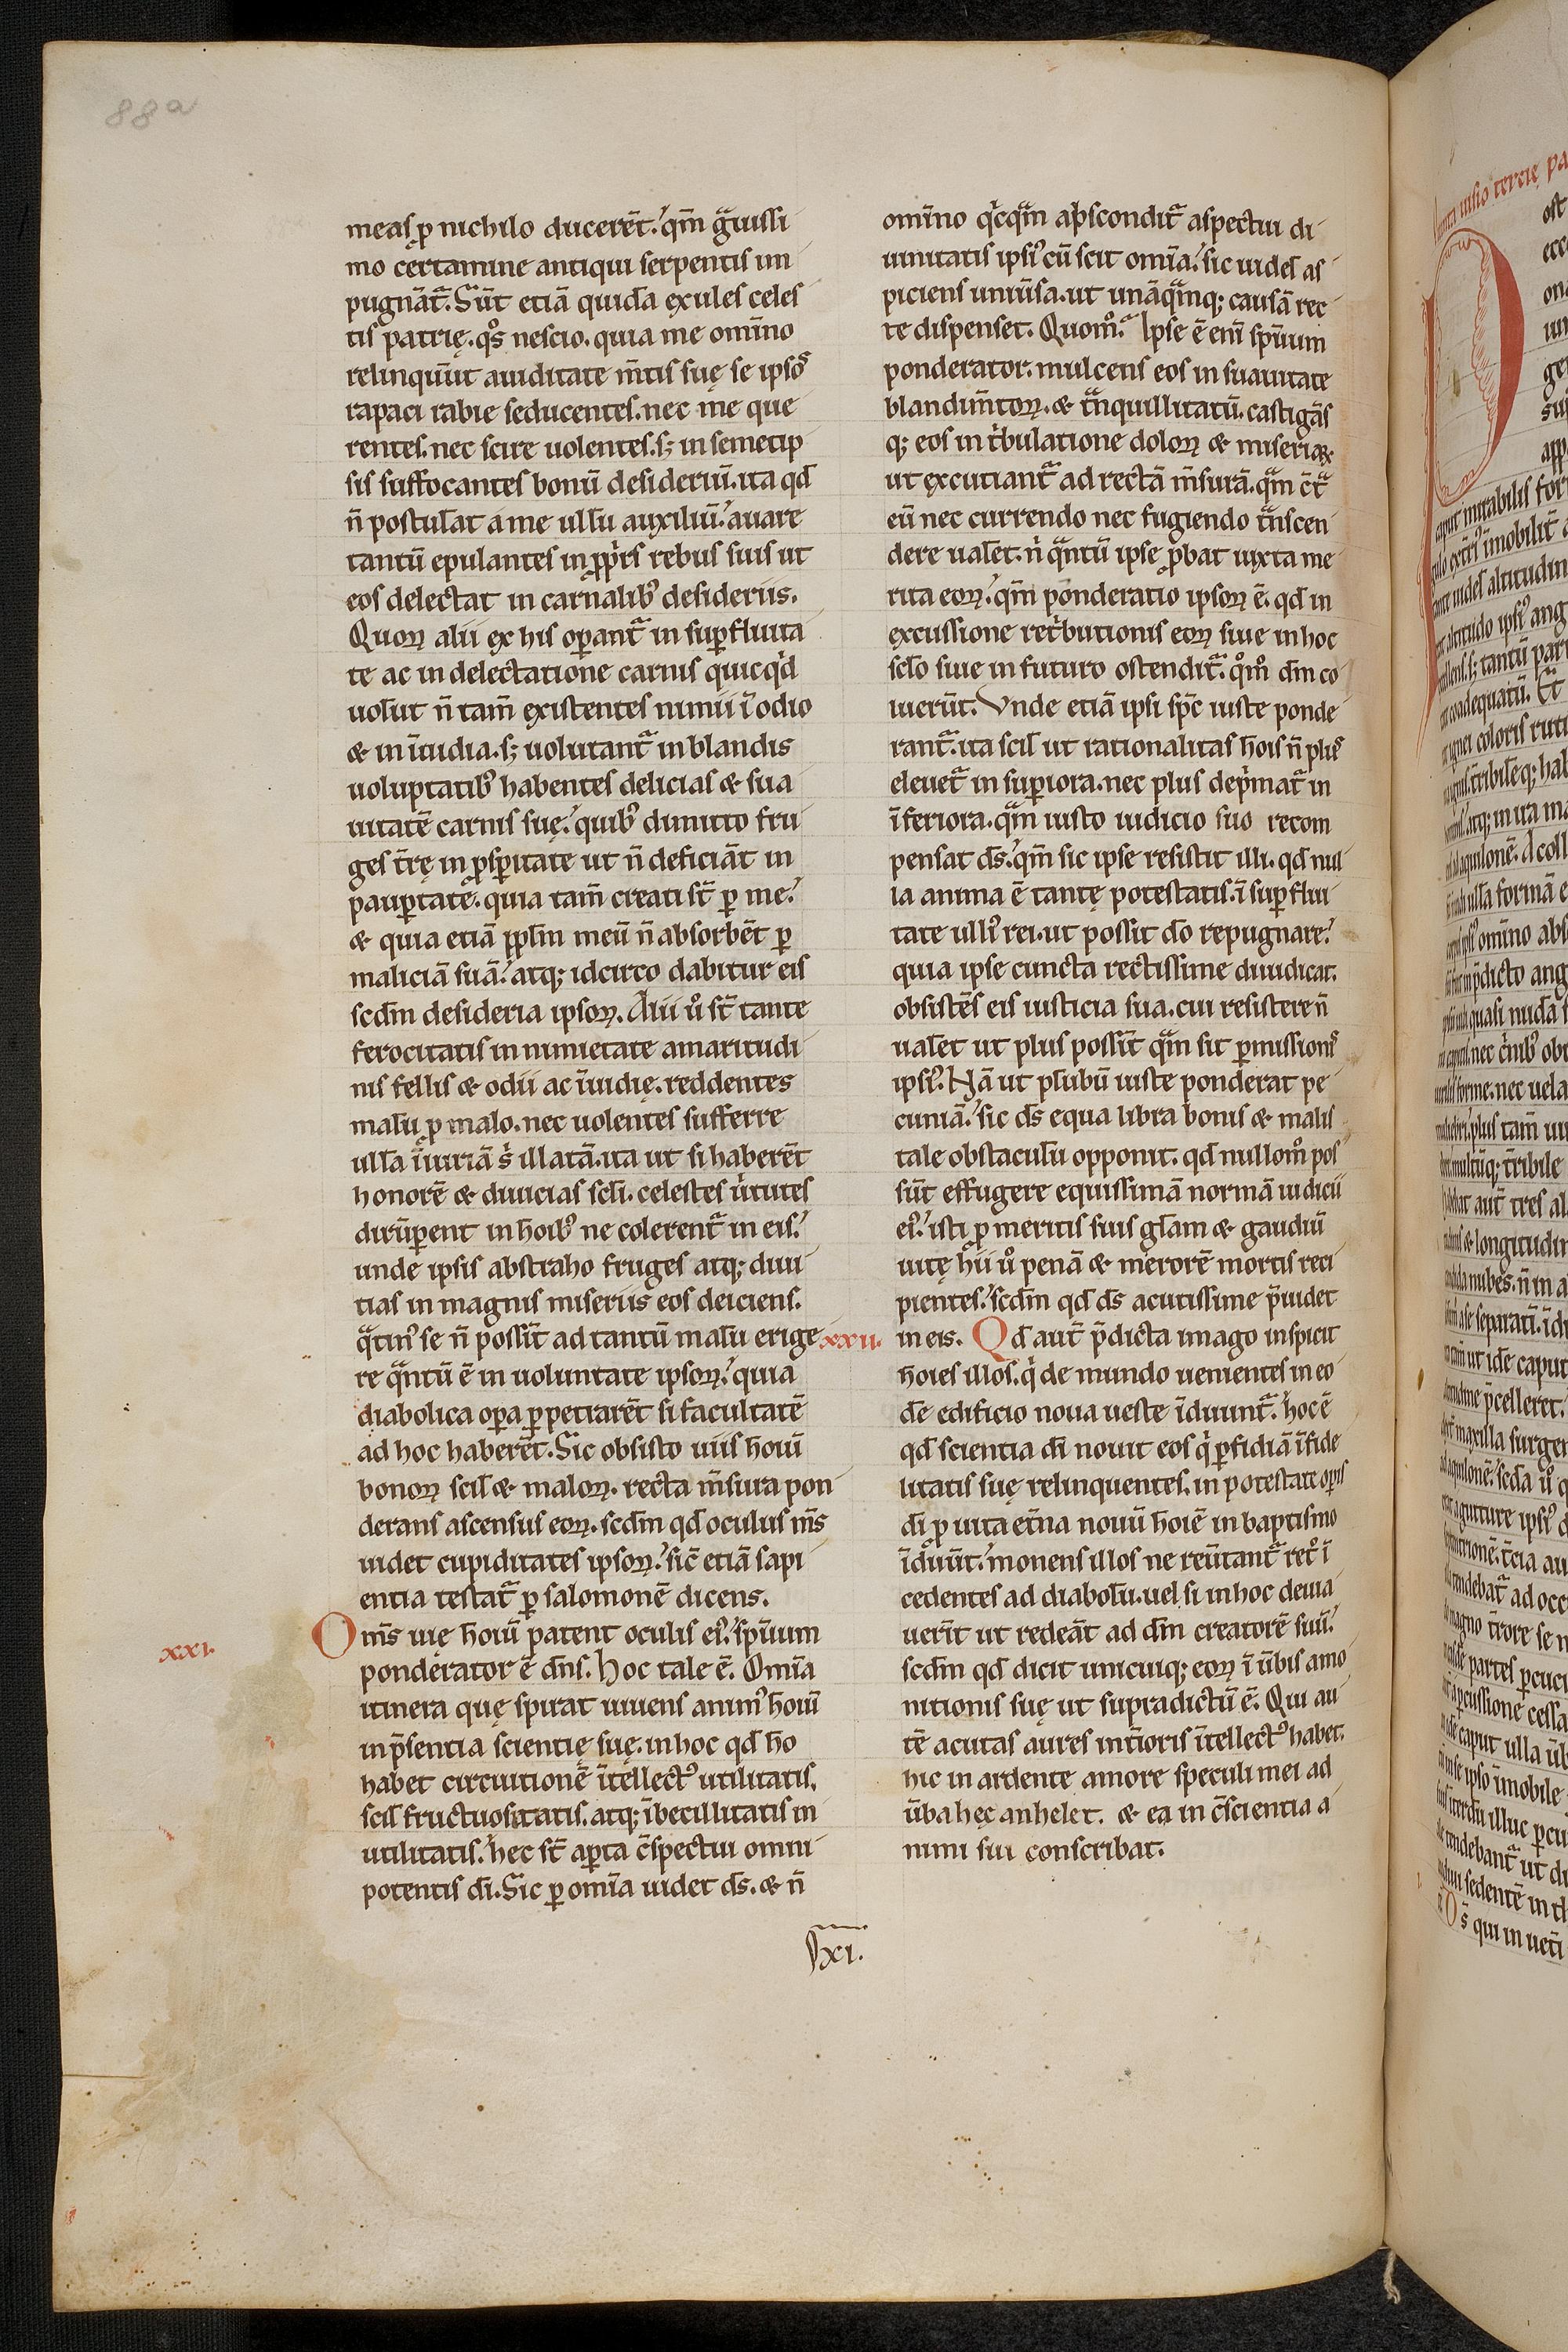 88a
meas ꝓ nichilo ducerēt. qm̄ gͣuissi
mo certamine antiqui serpentis im
pugnāt᷑. Sūt etiā quidā exules celes
tis patrię. qͦs nescio. quia me omīno
relinquūt auiditate m̄tis suę se ipsoˢ
rapaci rabie seducentes. nec me que
rentes. nec scire uolentes. sꝫ in semetip
sis suffocantes bonū desideriū. ita qd̄
n̄ postulāt a me ullū auxiliū. auare
tantū epulantes in ꝓpriis rebus suis ut
eos delectat in carnalibꝰ desideriis.
Quoꝝ alii ex his oꝑant᷑ in suꝑfluita
te ac in delectatione carnis quicqͥd
uolūt n̄ tam̄ existentes nimii ī odio
& in īuidia. sꝫ uolutant᷑ in blandis
uoluptatibꝰ habentes delicias & sua
uitatē carnis suę. quibꝰ dimitto fru
ges t̄rę in ꝓsꝑitate ut n̄ deficiāt in
pauꝑtate. quia tam̄ creati st̄ ꝑ me.
& quia etiā ppl̄m meū n̄ absorbēt ꝑ
maliciā suā. atqꝫ idcirco dabitur eis
scdm̄ desideria ipsoꝝ. Alii uͦ st̄ tante
ferocitatis in nimietate amaritudi
nis fellis & odii ac īuidię. reddentes
malū ꝓ malo. nec uolentes sufferre
ullā īiuriā sͥ illatā. ita ut si haberēt
honorē & diuicias scl̄i. celestes uͥtutes
dirūꝑent in hoībꝰ ne colerent᷑ in eis.
unde ipsis abstraho fruges atqꝫ diui
tias in magnis miseriis eos deiciens.
qͣtinꝰ se n̄ possīt ad tantū malū erige
re qͣntū ē in uoluntate ipsoꝝ. quia
diabolica oꝑa ꝑpetrarēt si facultatē
ad hoc haberēt. Sic obsisto uiis hoīū
bonoꝝ scil̄ & maloꝝ. recta m̄sura pon
derans ascensus eoꝝ. scdm̄ qd̄ oculus m̄s
uidet cupiditates ipsoꝝ. sic̄ etiā sapi
entia testat᷑ ꝑ salomonē dicens.
xxi. Om̄s uię hoīū patent oculis eiꝰ. spūum
ponderator ē dn̄s. Hoc tale ē. Omīa
itinera quę spirat uiuens animꝰ hoīū
in p̄sentia scientię suę. in hoc qd̄ hō
habet circuitionē ītellectꝰ utilitatis.
scil̄ fructuositatis. atqꝫ ībecillitatis in
utilitatis. hec st̄ aꝑta c̄spectui omni
potentis dī. Sic ꝑ omīa uidet ds̄. & n̄
omīno qͥcqͣm abscondit᷑ aspectui di
uinitatis ipsiꝰ cū scit omīa. sic uidēs as
piciens uniūsa. ut unāqͣmqꝫ causā rec
te dispenset. Quomͦ. Ipse ē enī spūum
ponderator. mulcens eos in suauitate
blandim̄toꝝ. & tͣnquillitatū. castigās
qꝫ eos in tͥbulatione doloꝝ & miseriaꝝ.
ut excutiant᷑ ad rectā m̄surā. qͣm c̄tͣ
eū nec currendo nec fugiendo tͣnscen
dere ualet. nͥ qͣntū ipse ꝓbat iuxta me
rita eoꝝ. qm̄ ponderatio ipsoꝝ ē. qd̄ in
excussione retͥbutionis eoꝝ siue in hoc
scl̄o siue in futuro ostendit᷑. qͦmͦ dm̄ co
luerūt. Vnde etiā ipsi sp̄c iuste ponde
rant᷑. ita scil̄ ut rationalitas hoīs n̄ plꝰ
eleuet᷑ in suꝑiora. nec plus depͥmat᷑ in
īferiora. qͣm iusto iudicio suo recom
pensat ds̄. qm̄ sic ipse resistit illi. qd̄ nul
la anima ē tantę potestatis. ī suꝑflui
tate ulliꝰ rei. ut possit dō repugnare.
quia ipse cuncta rectissime diiudicat.
obsistēs eis iusticia sua. cui resistere n̄
ualet ut plus possīt qͣm sit ꝑmissionis
ipsiꝰ. Nā ut plūbū iuste ponderat pe
cuniā. sic ds̄ equa libra bonis & malis
tale obstaculū opponit. qd̄ nullomͦ pos
sūt effugere equissimā normā iudicii
eiꝰ. isti ꝓ meritis suis gl̄am & gaudiū
uitę hii uͦ penā & merorē mortis reci
pientes. scdm̄ qd̄ ds̄ acutissime p̄uidet
xxii. in eis. Qd̄ aut̄ p̄dicta imago inspicit
hoīes illos. qͥ de mundo uenientes in eo
dē edificio noua ueste īduunt᷑. hoc ē
qd̄ scientia dī nouit eos qͥ ꝑfidiā īfide
litatis suę relinquentes. in potestate oꝑis
dī ꝓ uita et̄na nouū hoīē in baptismo
īduūt. monens illos ne reūtant᷑ retͦ ī
cedentes ad diabolū. uel si in hoc deuia
uerīt ut redeāt ad dm̄ creatorē suū.
scdm̄ qd̄ dicit unicuiqꝫ eoꝝ ī ūbis amo
nitionis suę ut supradictū ē. Qui au
tē acutas aures int̄ioris ītellectꝰ habet.
hic in ardente amore speculi mei ad
ūba hęc anhelet. & ea in c̄scientia a
nimi sui conscribat.